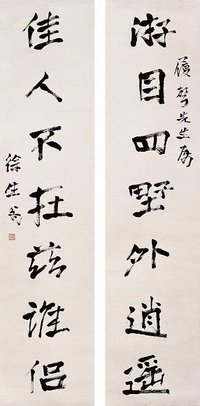 游目四野外逍遙
先生属
佳人不在兹誰侣
徐生翁